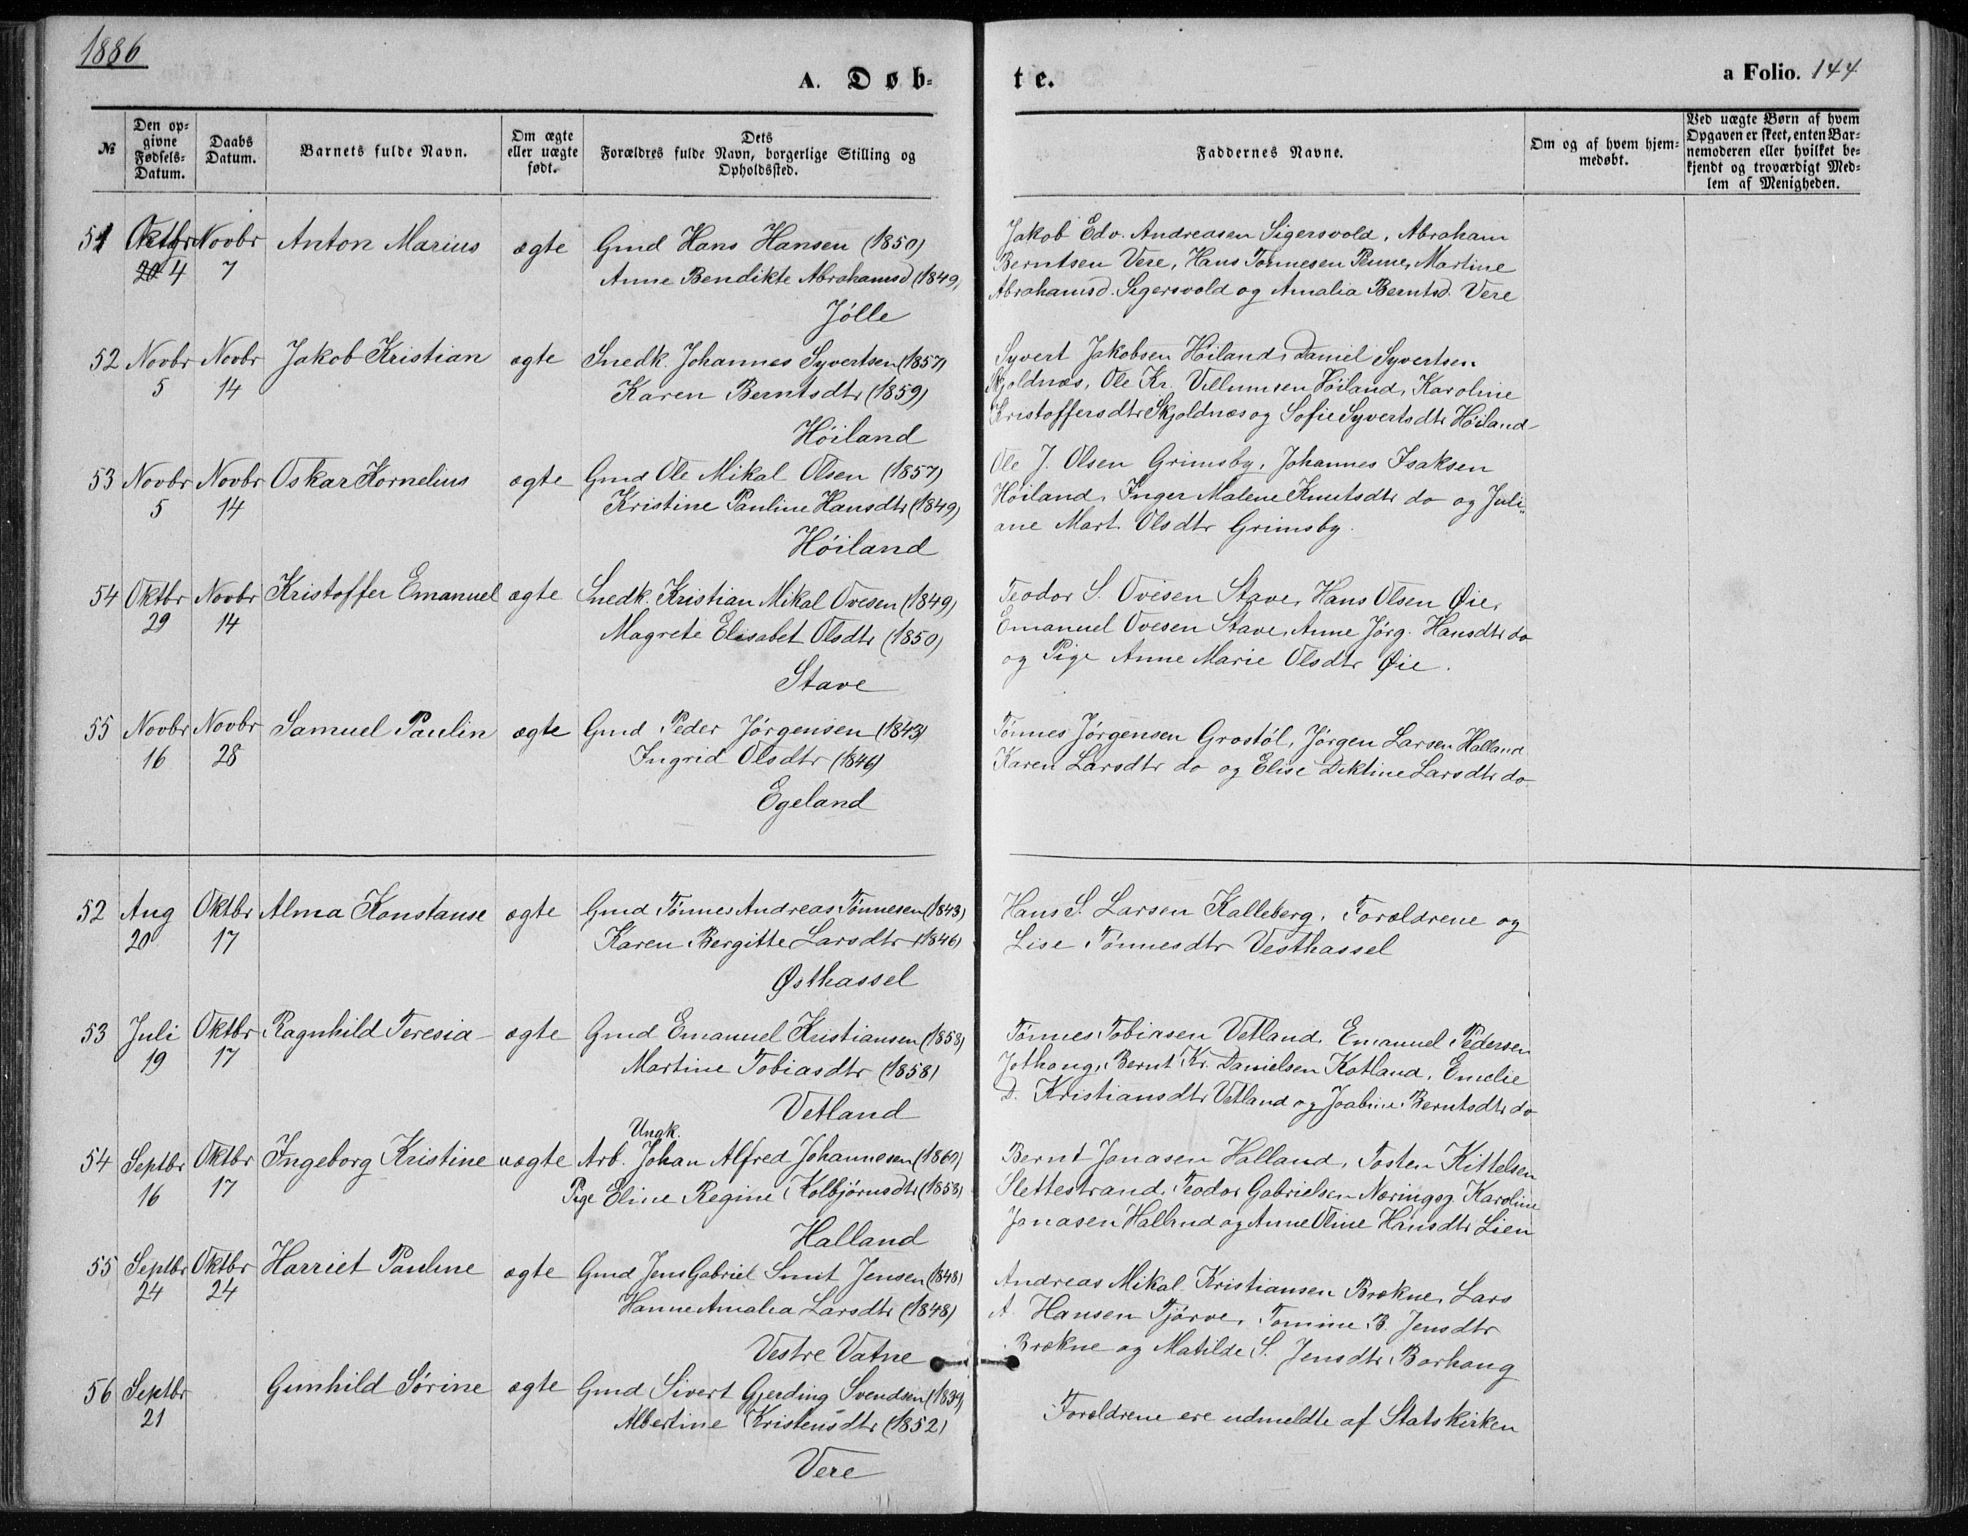 1886
A. Døb-
te.
a Folio. 144
№
Den op-
givne
Fødsels-
Datum.
Daabs
Datum.
Barnets fulde Navn.
Om ægte
eller uægte
født.
Dets
Forældres fulde Navn, borgerlige Stilling og
Opholdssted.
Faddernes Navne.
Om og af hvem hjem-
medøbt.
Ved uægte Børn af hvem
Opgaven er skeet, enten Bar-
nemoderen eller hvilket be-
kjendt og troværdigt Med-
lem af Menigheden.
51 Oktbr Novbr Anton Marius ægte Gmd Hans Hansen (1850)
20 4 7 Anne Bendikte Abrahamsd (1849)
Jølle
Jakob Edv. Andreasen Sigersvold, Abraham
Berntsen Vere, Hans Tønnesen Penne, Martine
Abrahamsd. Sigersvold og Amalia Berntsd. Vere
52 Novbr Novbr Jakob Kristian ægte Snedk. Johannes Syvertsen (1857)
5 14 Karen Berntsdtr (1859)
Høiland
Syvert Jakobsen Høiland, Daniel Syvertsen
Skjoldnæs, Ole Kr. Villumsen Høiland, Karoline
Kristoffersdtr Skjoldnæs og Sofie Syvertsdtr Høiland
53 Novbr Novbr Oskar Kornelius ægte Gmd Ole Mikal Olsen (1857)
5 14 Kristine Pauline Hansdtr (1849)
Høiland
Ole J. Olsen Grimsby, Johannes Isaksen
Høiland, Inger Malene Knutsdtr do og Juli-
ane Mart. Olsdtr Grimsby.
54 Oktbr Novbr Kristoffer Emanuel ægte Snedk. Kristian Mikal Ovesen (1849)
29 14 Magrete Elisabet Olsdtr (1850)
Stave
Teodor S. Ovesen Stave, Hans Olsen Øie,
Emanuel Ovesen Stave, Anne Jørg. Hansdtr do
og Pige Anne Marie Olsdtr Øie.
55 Novbr Novbr Samuel Paulin ægte Gmd Peder Jørgensen (1843)
16 28 Ingrid Olsdtr (1846)
Egeland
Tønnes Jørgensen Grostøl, Jørgen Larsen Halland
Karen Larsdtr do og Elise Diktine Larsdtr do
52 Aug Oktbr Alma Konstanse ægte Gmd Tønnes Andreas Tønnesen (1843)
20 17 Karen Bergitte Larsdtr (1846)
Østhassel
Hans S. Larsen Kalleberg, Forældrene og
Lise Tønnesdtr Vesthassel
53 Juli Oktbr Ragnhild Teresia ægte Gmd Emanuel Kristiansen (1858)
19 17 Martine Tobiasdtr (1858)
Vetland
Tønnes Tobiasen Vetland, Emanuel Pedersen
Jothaug, Bernt Kr. Danielsen Kotland, Emelie
D. Kristiansdtr Vetland og Joabine Berntsdtr do
Ungk.
54 Septbr Oktbr Ingeborg Kristine uægte Arb. Johan Alfred Johannesen (1861)
16 17 Pige Eline Regine Kolbjørnsdtr (1858)
Halland
Bernt Jonasen Halland, Tosten Kittelsen
Slettestrand, Teodor Gabrielsen Næring og Karoline
Jonasen Halland og Anne Oline Hansdtr Lien
55 Septbr Oktbr Harriet Pauline ægte Gmd Jens Gabriel Smit Jensen (1848)
24 24 Hanne Amalia Larsdtr (1848)
Vestre Vatne
Andreas Mikal Kristiansen Brekne, Lars
A. Hansen Tjørve, Tomine B. Jensdtr
Brekne og Matilde S. Jensdtr Borhaug
56 Septbr Gunhild Sørine ægte Gmd Sivert Gjerding Svendsen (1839)
21 Albertine Kristensdtr (1852)
Vere
Forældrene ere udmeldte af Statskirken